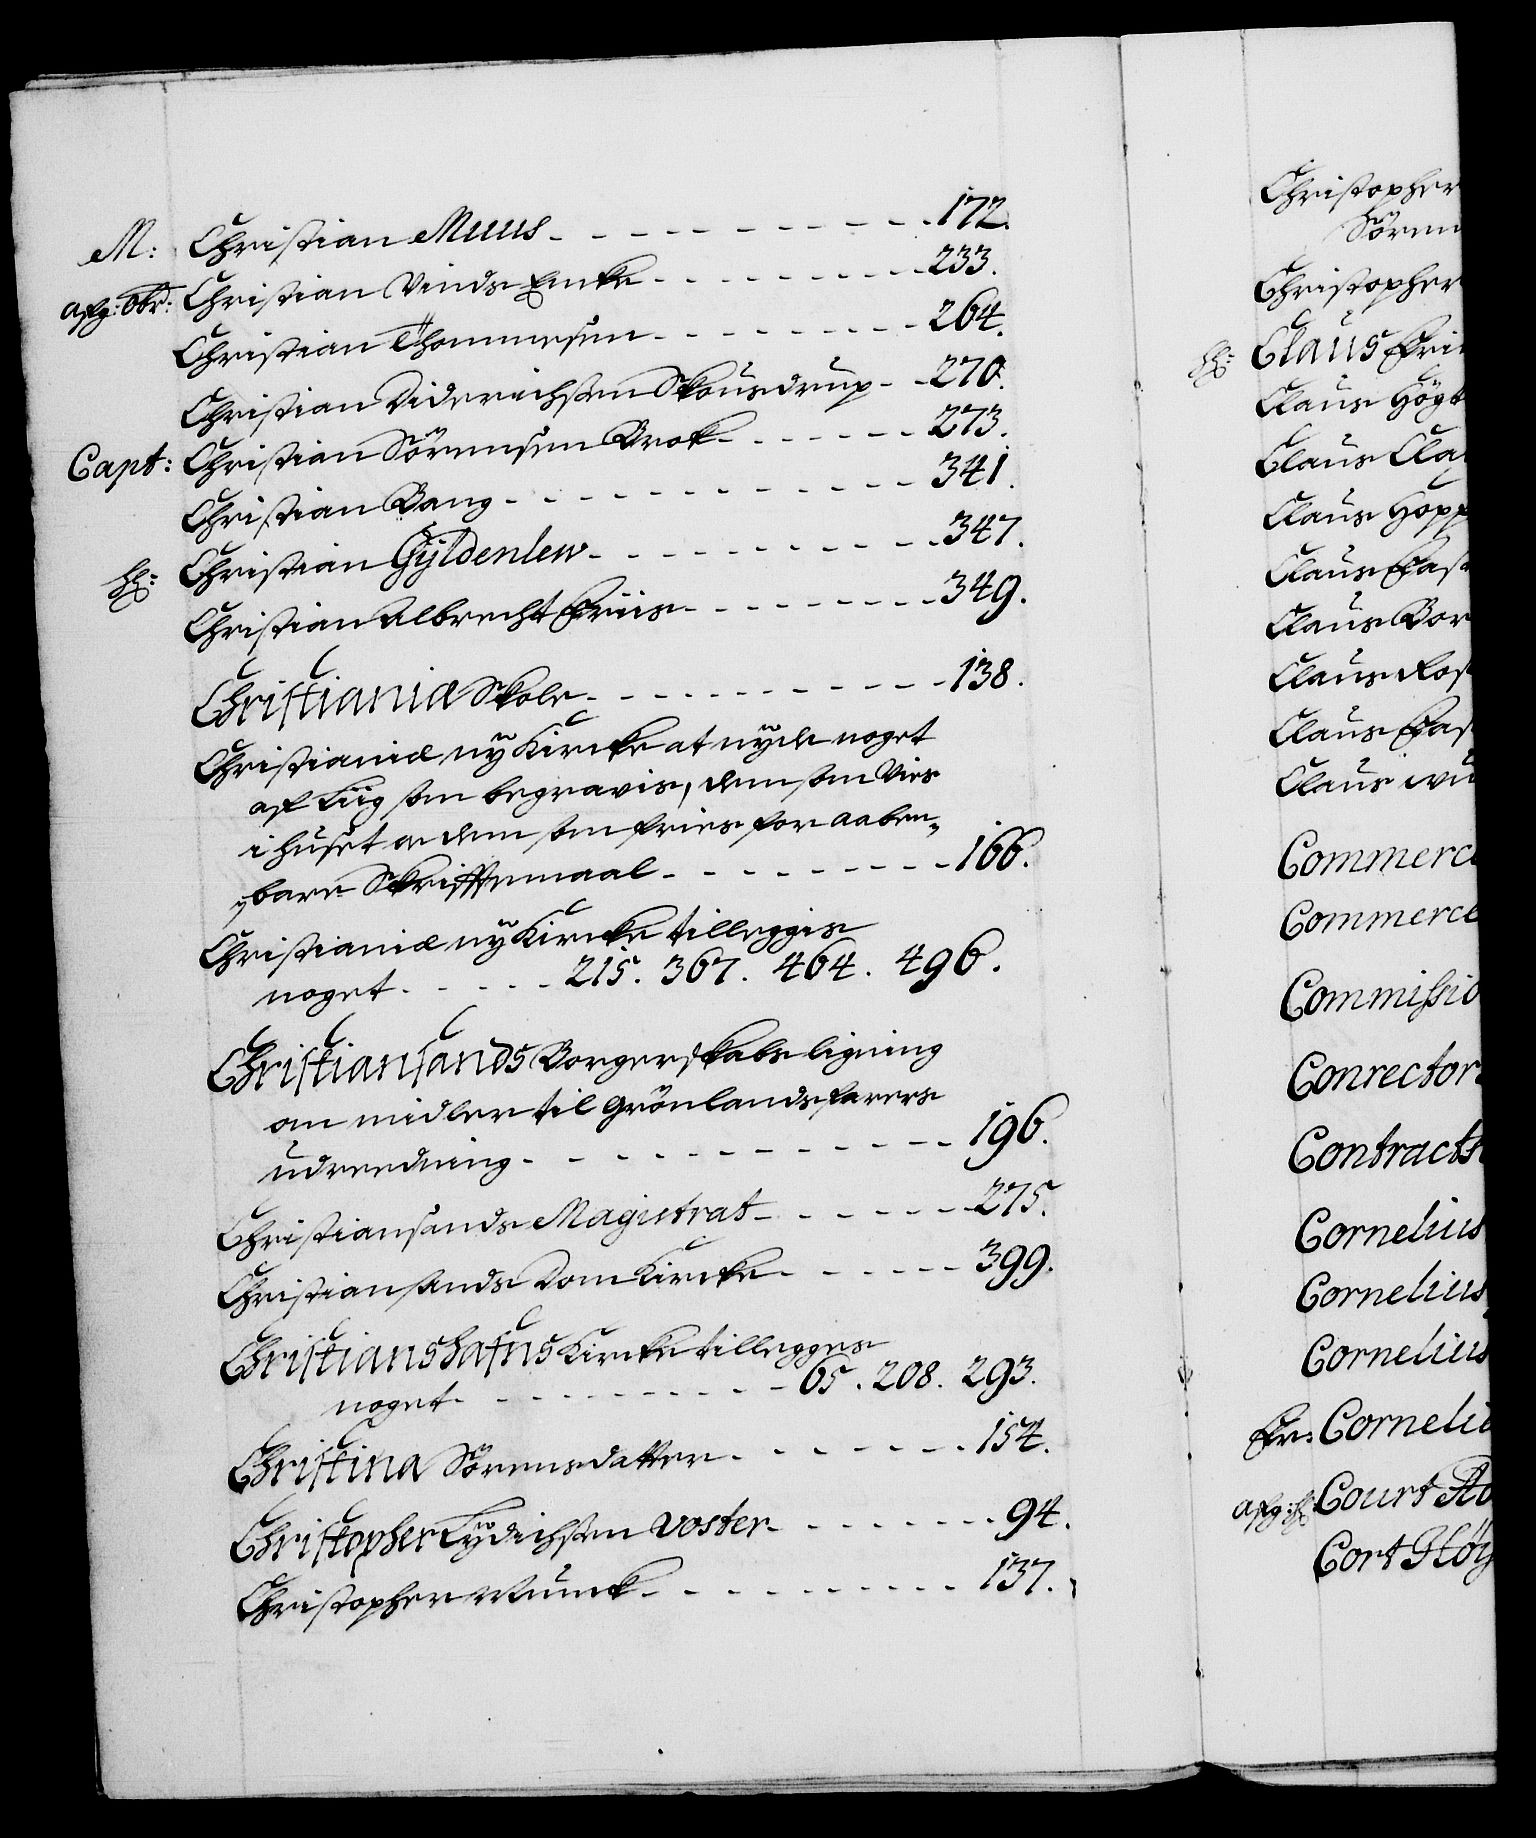 M: Christian Muus - - - - - - - - - - 172.
afg: Obr: Christian Vinds Encke - - - - - - - - 233.
Christian Thommesen - - - - - - - - 264.
Christian Diderichsen Skousdrup - - 270.
Capt: Christian Sörensen Brok - - - - - - 273.
Christian Bang - - - - - - - - - - - 341.
H: Christian Gyldenlew - - - - - - - - - 347.
Christian Albrecht Friis - - - - - - - 349.
Christianiæ Skole - - - - - - - - - - 138.
Christianiæ ny Kircke at nyde noget
af Liig som begravis, dem som Vies
i huset oc dem som fries for aaben„
„bare Skrifftemaal - - - - - - - - 166.
Christianiæ ny Kircke tilleggis
noget - - - - - 215. 367. 464. 496.
Christiansands Borgerskabs ligning
om midler til Grönlandsfarers
udreedning - - - - - - - - - - 196.
Christiansands Magistrat - - - - - - 275.
Christiansands Dom Kircke - - - - - 399.
Christianshafns Kircke tillegges
noget - - - - - - - - 65. 208. 293.
Christina Sörensdatter - - - - - - 154.
Christopher Lydichsen Voster - - - - - - 94.
Christopher Munck - - - - - - - - 137.
Christopher
Sören
Christopher
H: Claus Fri
Claus Höyt
Claus Cla
Claus Hopp
Claus Fast
Claus Bor
Claus Ros
Claus Fas
Claus
Commerc
Commerce
Commissio
Conrector
Contracts
Cornelius
Cornelius
Cornelius
Fr: Corneli
afg: H: Court A
Cort Höy